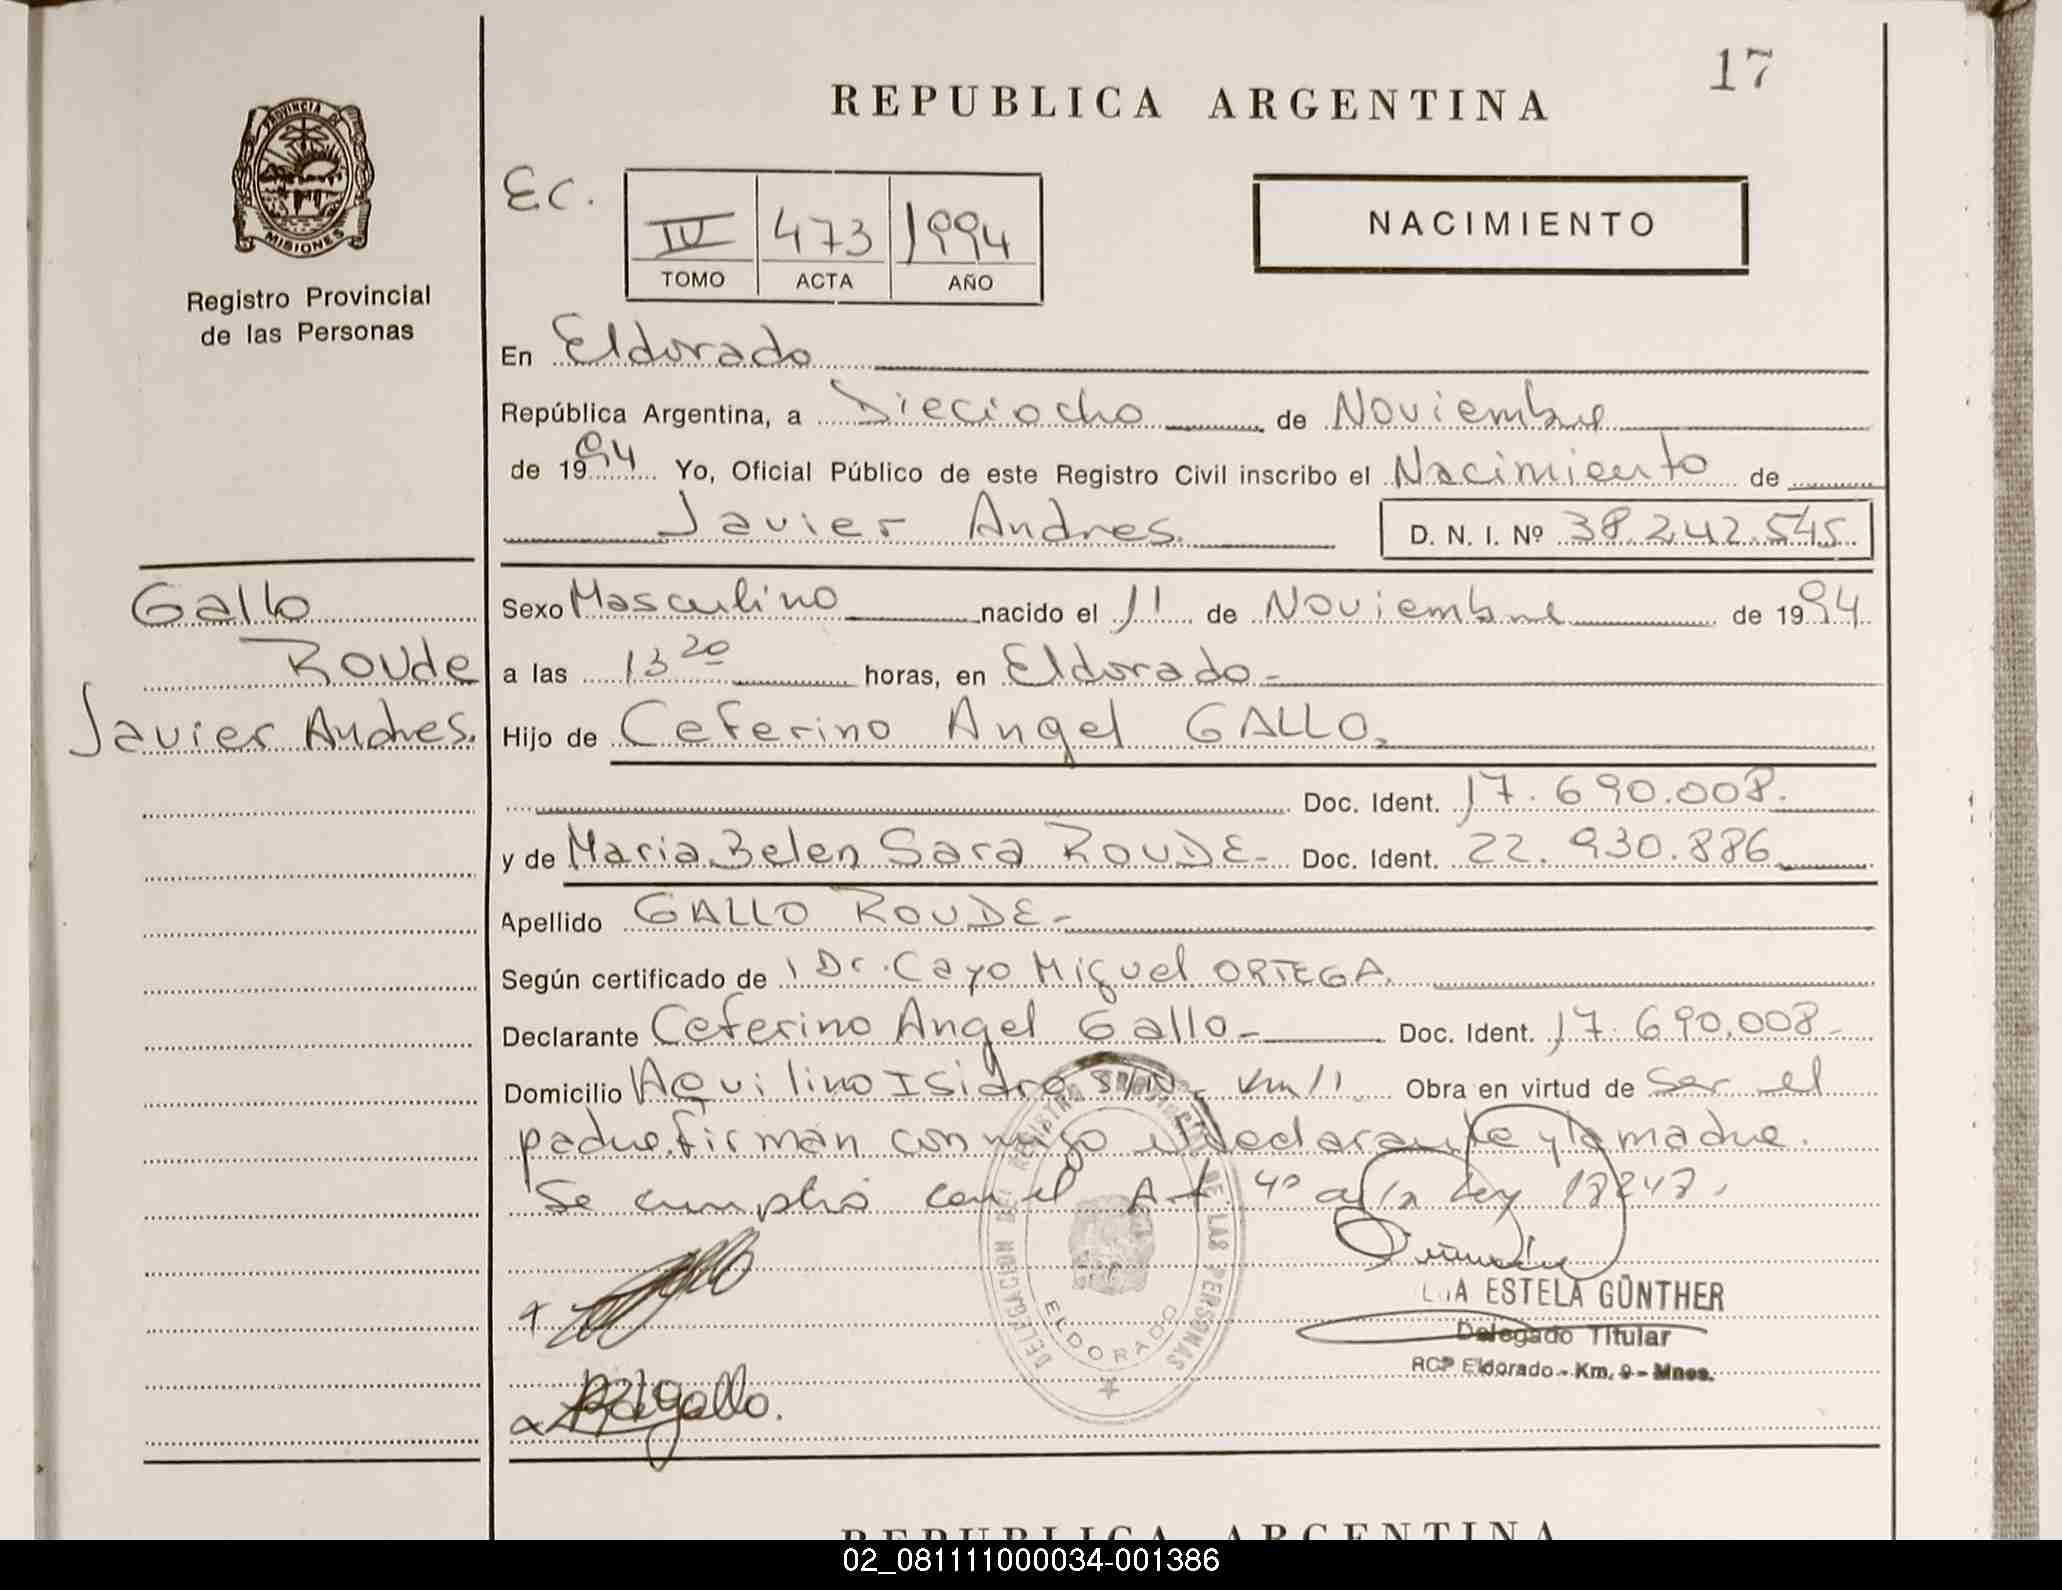 17
REPUBLICA ARGENTINA
PROVINCIA DE
MISIONES
Registro Provincial
de las Personas
EC.
IV 473 1994
TOMO ACTA AÑO
NACIMIENTO
En Eldorado
República Argentina, a Dieciocho de Noviembre
de 1994 Yo, Oficial Público de este Registro Civil inscribo el Nacimiento de
Javier Andres. D. N. I. Nº 38.242.545
Gallo
Roude
Javier Andres.
Sexo Masculino nacido el 11 de Noviembre de 1994
a las 13 20 horas, en Eldorado-
Hijo de Ceferino Angel GALLO.
Doc. Ident. 17.690.008.
y de Maria Belen Sara ROUDE- Doc. Ident. 22.930.886
Apellido GALLO ROUDE-
Según certificado de Dr. Cayo Miguel ORTEGA.
Declarante Ceferino Angel Gallo- Doc. Ident. 17.690.008-
Domicilio Aquilino Isidro S/N- Km 11 Obra en virtud de ser el
padre. firman conmigo el declarante y la madre.
Se cumplió con el Art 4º de la Ley 18248.
DELEGACION DEL REGISTRO PROVINCIAL DE LAS PERSONAS
ELDORADO
ESTELA GÜNTHER
Delegado Titular
RCP Eldorado - Km. 9 - Mnes.
Gallo.
REPUBLICA ARGENTINA
02_081111000034-001386